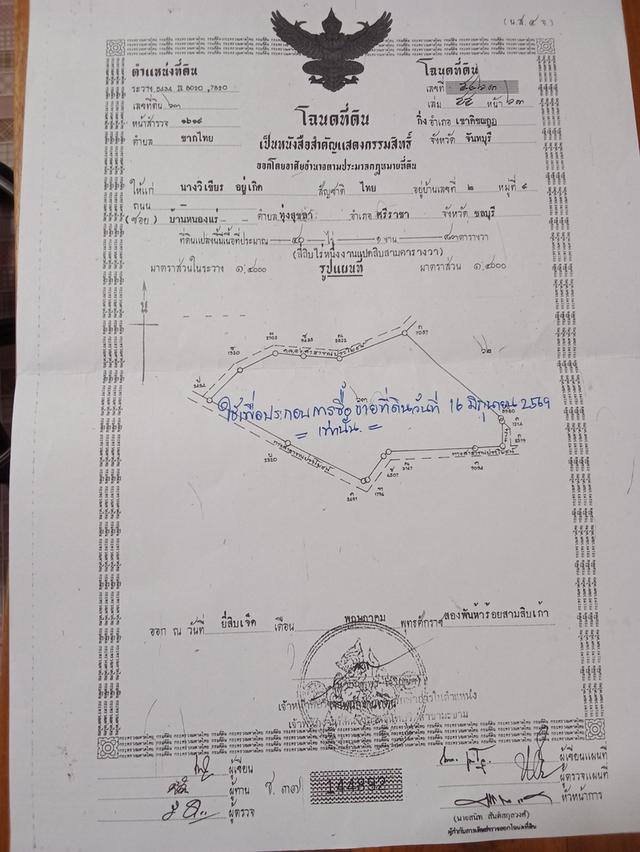 (น.ส. ๔ จ.)
ตำแหน่งที่ดิน
ระวาง 5434 II 8020 , 7820
เลขที่ดิน ๖๓
หน้าสำรวจ ๑๖๑๙
ตำบล ชากไทย
โฉนดที่ดิน
เลขที่
เล่ม หน้า ๖๓
กิ่ง อำเภอ เขาคิชฌกูฏ
จังหวัด จันทบุรี
โฉนดที่ดิน
เป็นหนังสือสำคัญแสดงกรรมสิทธิ์
ออกโดยอาศัยอำนาจตามประมวลกฎหมายที่ดิน
ให้แก่ นางวิเชียร อยู่เกิด สัญชาติ ไทย อยู่บ้านเลขที่ ๒ หมู่ที่
ถนน
(ซอย) บ้านหนองแร่ ตำบล ทุ่งสุขลา อำเภอ ศรีราชา จังหวัด ชลบุรี
ที่ดินแปลงนี้มีเนื้อที่ประมาณ ๔๐ ไร่ ๑ งาน ๘๓ ตารางวา
(สี่สิบไร่หนึ่งงานแปดสิบสามตารางวา)
มาตราส่วนในระวาง ๑:๔๐๐๐ รูปแผนที่ มาตราส่วน ๑:๔๐๐๐
น
๖๒
๖๓
ทางสาธารณประโยชน์
ทางสาธารณประโยชน์
ใช้เพื่อประกอบการซื้อขายที่ดินวันที่ 16 มิถุนายน 2569
= เท่านั้น =
ออก ณ วันที่ ยี่สิบเจ็ด เดือน พฤษภาคม พุทธศักราช สองพันห้าร้อยสามสิบเก้า
เจ้าพนักงานที่ดิน
ผู้เขียน
ผู้ทาน
ผู้ตรวจ
ช. ๓๗
144892
ผู้เขียนแผนที่
ผู้ตรวจแผนที่
หัวหน้าการ
(นายสนิท สันติสกุลวงศ์)
ผู้กำกับการเดินสำรวจออกโฉนดที่ดิน